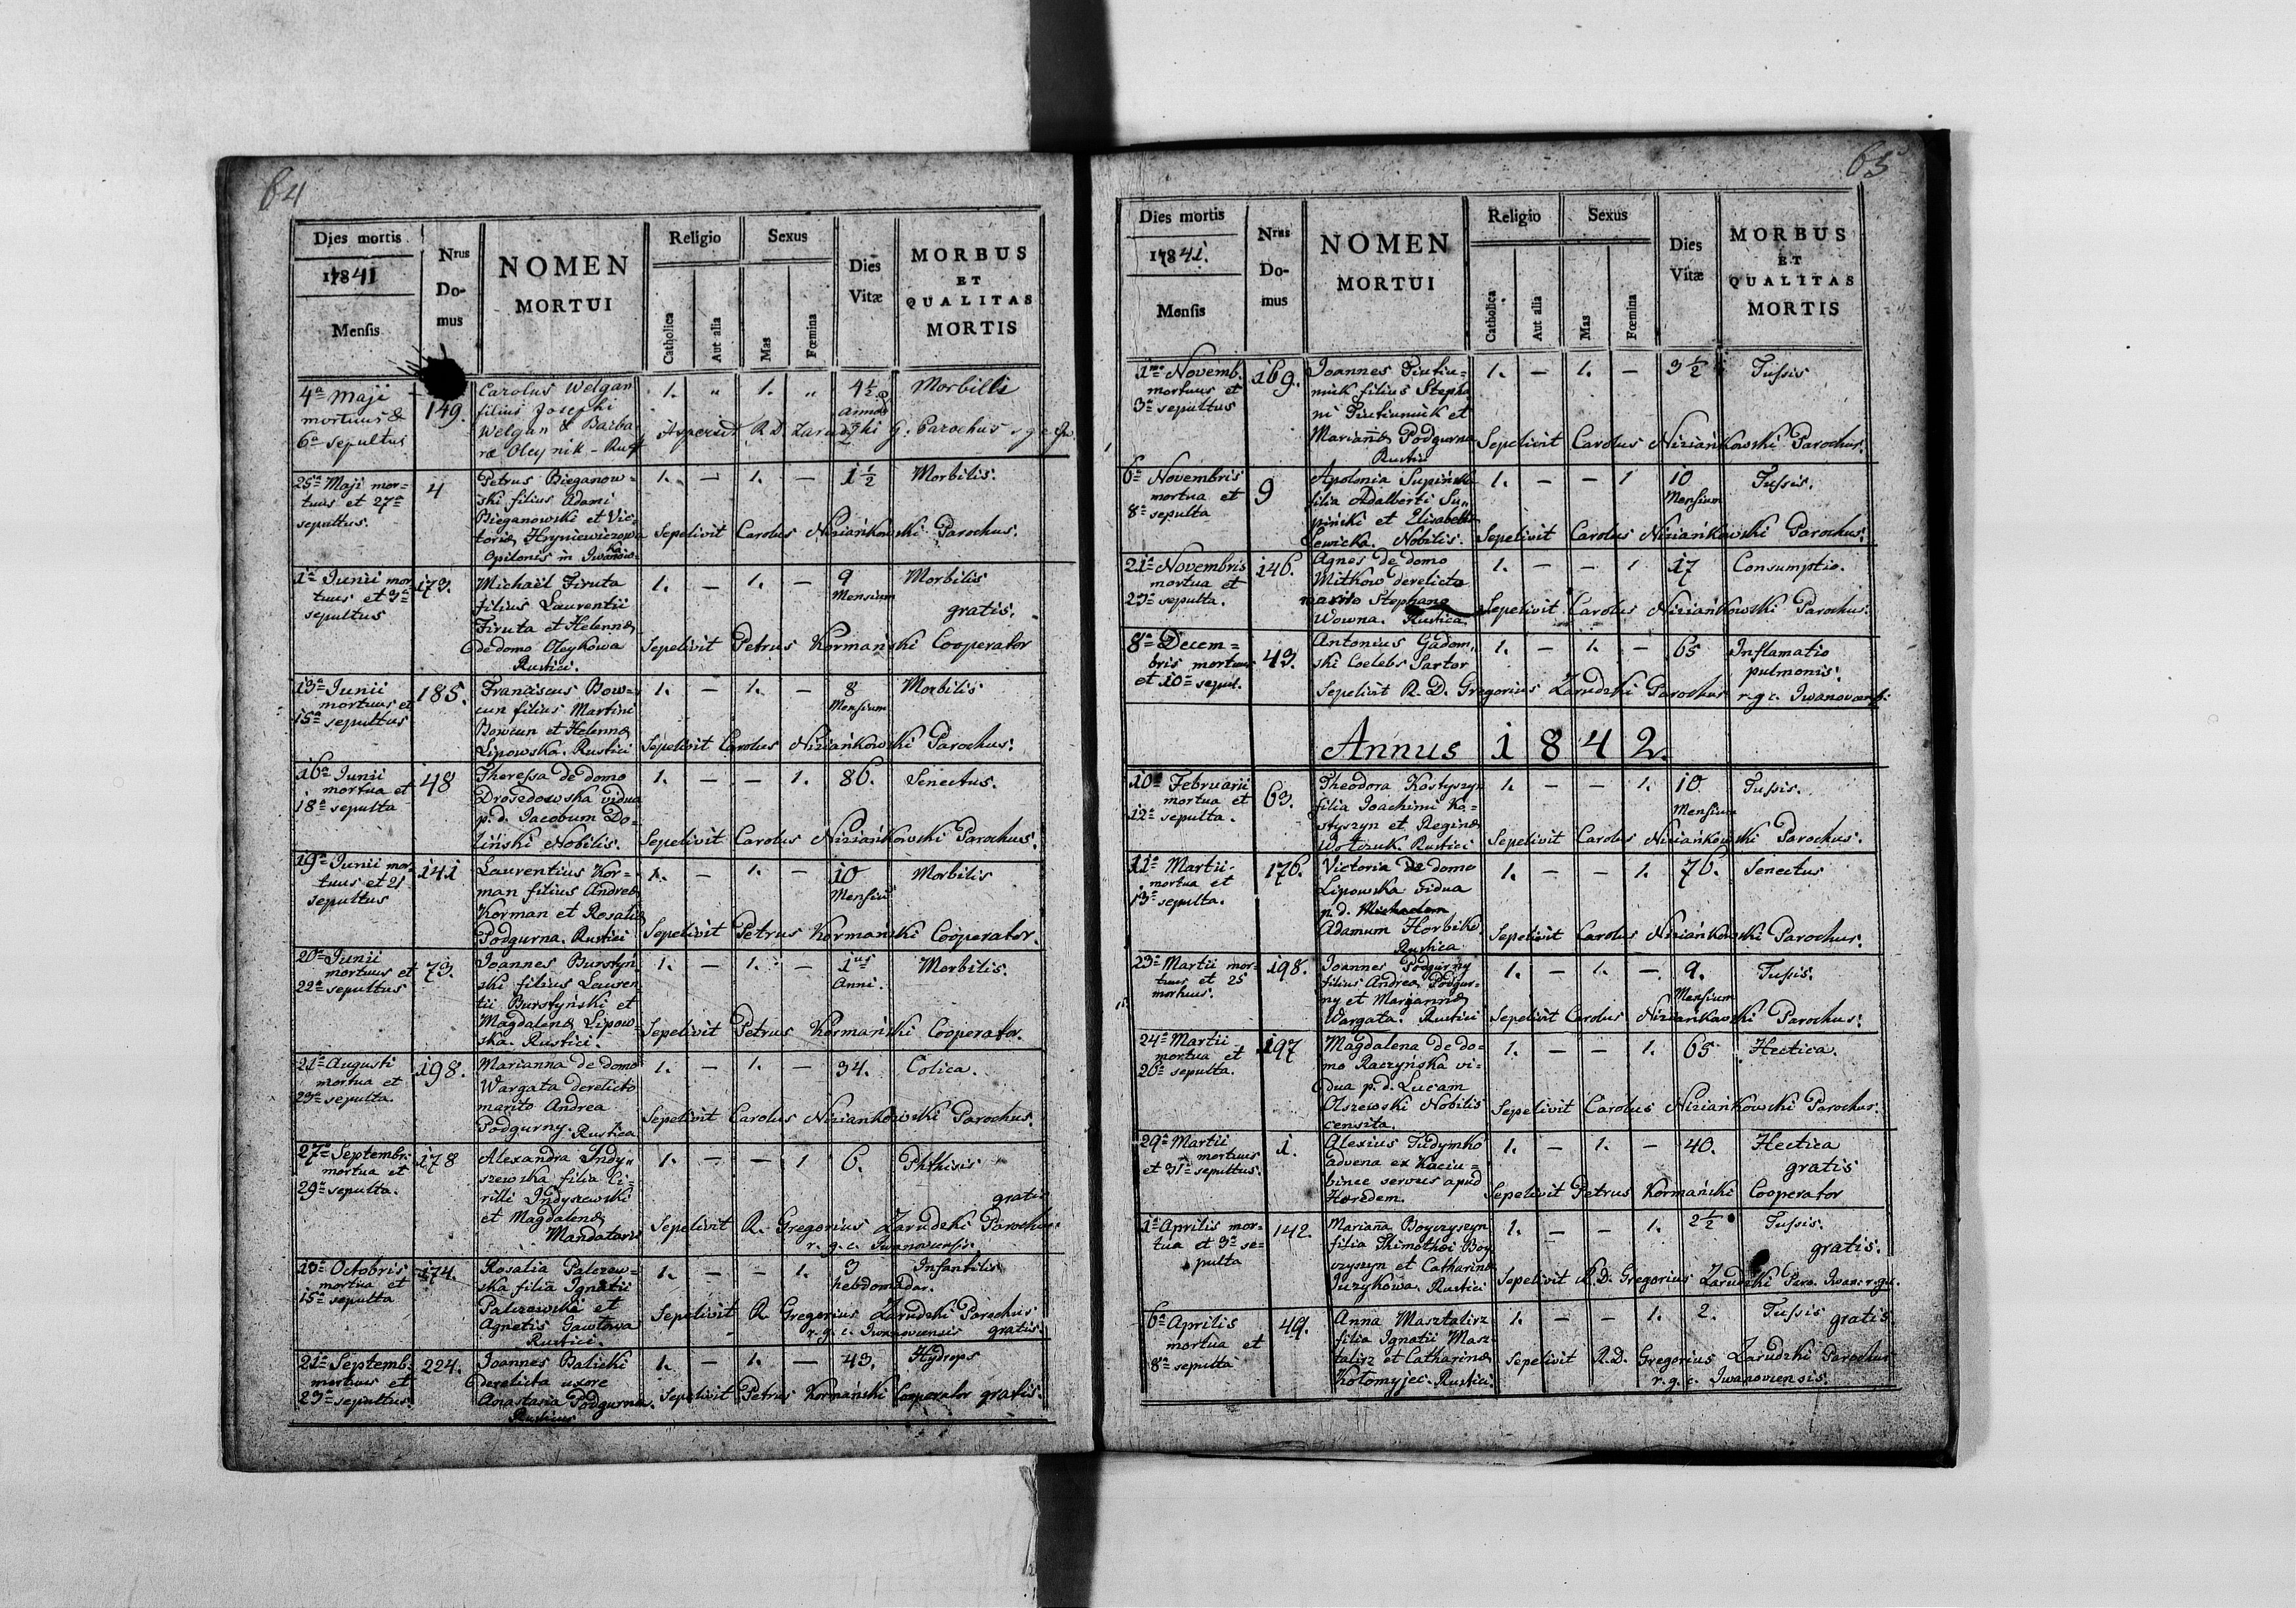 64
Dies mortis
17841
Mensis
Nrus
Do-
mus
NOMEN
MORTUI
Religio
Catholica
Aut alia
Sexus
Mas
Fœmina
Dies
Vitæ
MORBUS
ET
QUALITAS
MORTIS
4a Maji
mortuus &
6a sepultus
149.
Carolus Welgan
filius Josephi
Welgan & Barba
ræ Oleynik - Rust
1. " 1. "
4 1/2
annor
Morbilli
R. D. Zarudzki G. Parochus
25a Maji mor=
tuus et 27a
sepultus.
4
Petrus Bieganow=
ski filius Adami
Bieganowski et Vic=
toriæ Hryniewiczow
Opilonis in Iwanow
1. — 1. —
1 1/2
Morbilis.
Sepelivit Carolus Niziańkowski Parochus.
1a Junii mor
tuus et 3a
sepultus
173.
Michael Firuta
filius Laurentii
Firuta et Helennæ
de domo Oleykowa
Rustici.
1. — 1. —
9
Mensium
Morbilis
gratis.
Sepelivit Petrus Kormański Cooperator
13a Junii
mortuus et
15a sepultus
185.
Franciscus Bow=
cun filius Martini
Bowcun et Helennæ
Lipowska. Rustici
1. — 1. —
8
Mensium
Morbilis
Sepelivit Carolus Niziańkowski Parochus.
16a Junii
mortua et
18a sepulta
48
Theressa de domo
Drosedowska vidua
p. d. Jacobum Do=
liński Nobilis.
1. — — 1.
86.
Senectus.
Sepelivit Carolus Niziańkowski Parochus.
19a Junii mor=
tuus et 21
sepultus
141
Laurentius Kor=
man filius Andreæ
Korman et Rosaliæ
Podgurna. Rustici
1. — 1. —
10
Mensium
Morbilis
Sepelivit Petrus Kormański Cooperator.
20a Junii
mortuus et
22a sepultus
73.
Joannes Burstyń
ski filius Lauren
tii Burstyński et
Magdalenæ Lipow=
ska. Rustici.
1. — 1. —
1us
Anni.
Morbilis.
Sepelivit Petrus Kormański Cooperator.
21a Augusti
mortua et
23a sepulta.
198.
Marianna de domo
Wargata derelicto
marito Andrea
Podgurny. Rustica
1. — 1. —
34.
Colica.
Sepelivit Carolus Niziankowski Parochus.
27a Septembri
mortua et
29a sepulta.
178
Alexandra Indy"
szewska filia Ci=
rilli Indyszewski
et Magdalenæ
Mandataris
1. — — 1
6.
Phthisis
gratis
Sepelivit R. Gregorius Zarudzki Parochus
r. g. c. Iwanovcensis.
13a Octobris
mortua et
15a sepulta
174.
Rosalia Palczew=
ska filia Ignatii
Palczewski et
Agnetis Gawłowa
Rustici.
1. — — 1.
3
hebdomadar.
Infantilis
Sepelivit R. Gregorius Zarudzki Parochus
r. g. c. Iwanovcensis gratis.
21a Septemb.
mortuus et
23a sepultus.
224.
Joannes Balicki
derelicta uxore
Anastasia Podgurna.
Rusticus
1. — 1. —
43.
Hydrops
Sepelivit Petrus Kormański Cooperator gratis.
65
Dies mortis
17841.
Mensis
Nrus
Do-
mus
NOMEN
MORTUI
Religio
Catholica
Aut alia
Sexus
Mas
Fœmina
Dies
Vitæ
MORBUS
ET
QUALITAS
MORTIS
1ma Novemb.
mortuus et
3a sepultus
169.
Joannes Tiutiu=
nnik filius Stepha
ni Tiutiunnik et
Mariannæ Podgurna
Rustici
1. — 1. —
3 1/2
Tussis
Sepelivit Carolus Niziańkowski Parochus.
6a Novembris
mortua et
8a sepulta
9
Apolonia Supińska
filia Adalberti Su"
piński et Elisabeth
Lewicka. Nobilis.
1. — — 1
10
Mensium
Tussis.
Sepelivit Carolus Niziańkowski Parochus.
21a Novembris
mortua et
23a sepulta.
146.
Agnes de domo
Mitkow derelicto
marito Stephano
Wowna. Rustica
1. — — 1
17
Consumptio.
Sepelivit Carolus Niziańkowski Parochus.
8a Decem=
bris mortuus
et 10a sepul.
43.
Antonius Gadom"
ski Coelebs Sartor
1. — 1. —
65
Inflamatio
pulmonis.
Sepelivit R. D. Gregorius Zarudzki Parochus r. g. c. Iwanovcensis.
Annus 1842.
10a Februarii
mortua et
12a sepulta.
63.
Theodora Kostyszyn
filia Joachimi Ko=
styszyn et Reginæ
Wołczuk. Rustici
1. — — 1.
10
Mensium
Tussis.
Sepelivit Carolus Niziańkowski Parochus.
11a Martii
mortua et
13a sepulta.
176.
Victoria de domo
Lipowska Vidua
p. d. Michaelem
Adamum Horbiko
Rustica
1. — — 1.
76.
Senectus
Sepelivit Carolus Niziańkowski Parochus.
23a Martii mor=
tuus et 25
mortuus.
198.
Joannes Podgurny
filius Andreæ Podgur=
ny et Mariannæ
Wargata. Rustici
1. — 1. —
9.
Mensium
Tussis.
Sepelivit Carolus Niziańkowski Parochus.
24a Martii
mortua et
26a sepulta.
197
Magdalena de do=
mo Raczyńska vi=
dua p. d. Lucam
Olszewski Nobilis
censita.
1. — — 1.
65
Hectica.
Sepelivit Carolus Niziańkowski Parochus.
29a Martii
mortuus
et 31a sepultus.
1.
Alexius Tudymko
advena ex Kaciu=
bince servus apud
Hæredem.
1. — 1. —
40.
Hectica
gratis
Sepelivit Petrus Kormański Cooperator
1a Aprilis mor=
tua et 3a se=
pulta
142.
Marianna Boyczyszyn
filia Thimothei Boy
czyszyn et Catharinæ
Juzykowa. Rustici
1. — — 1.
2 1/2
Tussis.
gratis.
Sepelivit R. D. Gregorius Zarudzki Paro. Iwan. r. g. c.
6a Aprilis
mortua et
8a sepulta
49.
Anna Masztalirz
filia Ignatii Masz
talirz et Catharinæ
Kołomyjec. Rustici.
1. — — 1.
2.
Tussis
gratis.
Sepelivit R. D. Gregorius Zarudzki Parochus
r. g. c. Iwanovcensis.